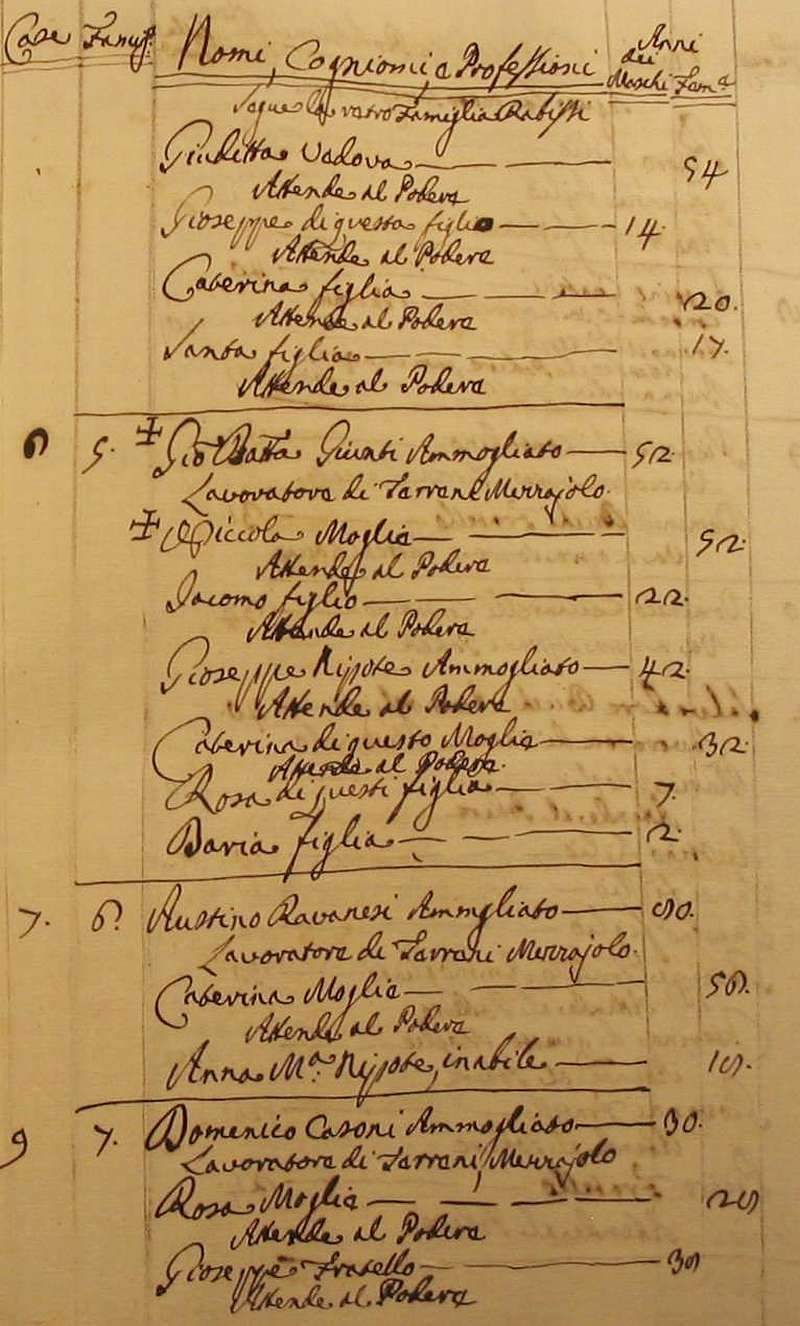 Case Famig.e Nomi, Cognomi, e Professioni Anni dei Maschi Fem.e
Segue la Famiglia
Giuditta Vedova 54
Attende al Podere
Gioseppe di questa figlio 14.
Attende al Podere
Caterina figlia 20.
Attende al Podere
Santa figlia 17.
Attende al Podere
6 5. Gio Batta Giunti Ammogliato 52
Lavoratore de Terreni Mezzajolo
Niccola Moglie 52.
Attende al Podere
Iacomo figlio 22.
Attende al Podere
Gioseppe Nipote Ammogliato 42.
Attende al Podere
Caterina di questo Moglie 32.
Attende al Podere
Rosa di questi figlia 7.
Daria figlia 2.
7. 6. Ravanesi Ammogliato 60.
Lavoratore de Terreni Mezzajolo.
Caterina Moglie 56.
Attende al Podere
Anna M.a Nipote, inabile 16.
9 7. Domenico Casoni Ammogliato 30.
Lavoratore de Terreni, Mezzajolo
Rosa Moglie 26
Attende al Podere
Gioseppe Fratello
Attende al Podere